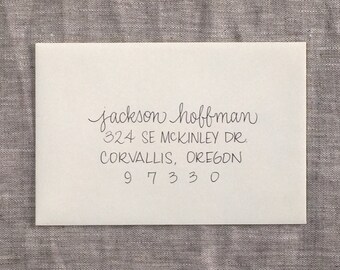 jackson hoffman
324 SE McKINLEY DR.
CORVALLIS, OREGON
9 7 3 3 0